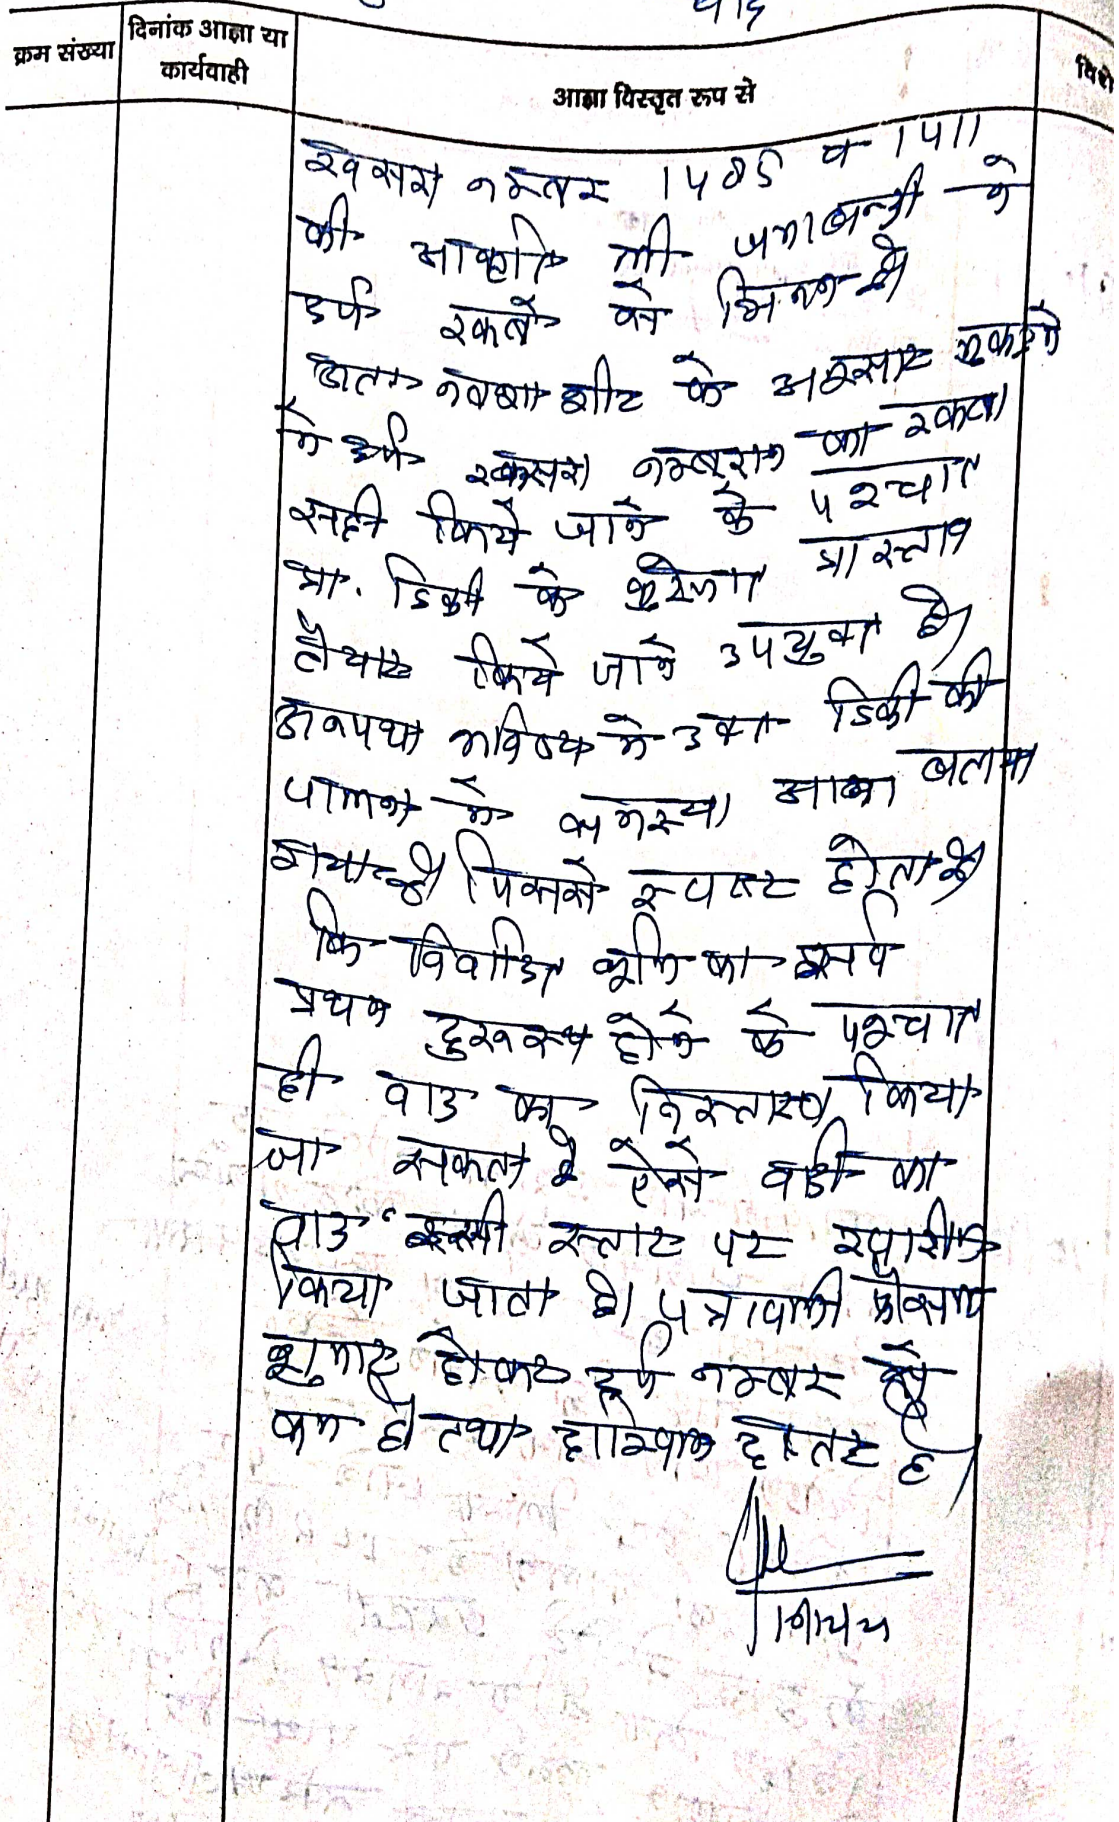 वाद
क्रम संख्या
दिनांक आज्ञा या
कार्यवाही
आज्ञा विस्तृत रुप से
विशे
खसरा नम्बर 1405 व 1411
की आकृति भी जमाबन्दी मे
दर्ज रकबे से भिन्न है
अतः नक्शा शीट के अनुसार मुकदमे
मे दर्ज खसरा नम्बरान का रकबा
सही किये जाने के पश्चात
प्रा. डिक्री के प्रस्ताव
तैयार किये जाने उपयुक्त है।
अन्यथा भविष्य मे उक्त डिक्री की
पालना मे समस्या आना बताया
गया है। जिससे स्पष्ट होता है
कि विवादित भूमि का सर्व
प्रथम दुरूस्त होने के पश्चात
ही वाद का निस्तारण किया
जा सकता है ऐसे वादी का
वाद इसी स्तर पर खारीज
किया जाता है। पत्रावली फैसल
शुमार होकर दर्ज नम्बर से
कम हो तथा दाखिल दफ्तर हो।